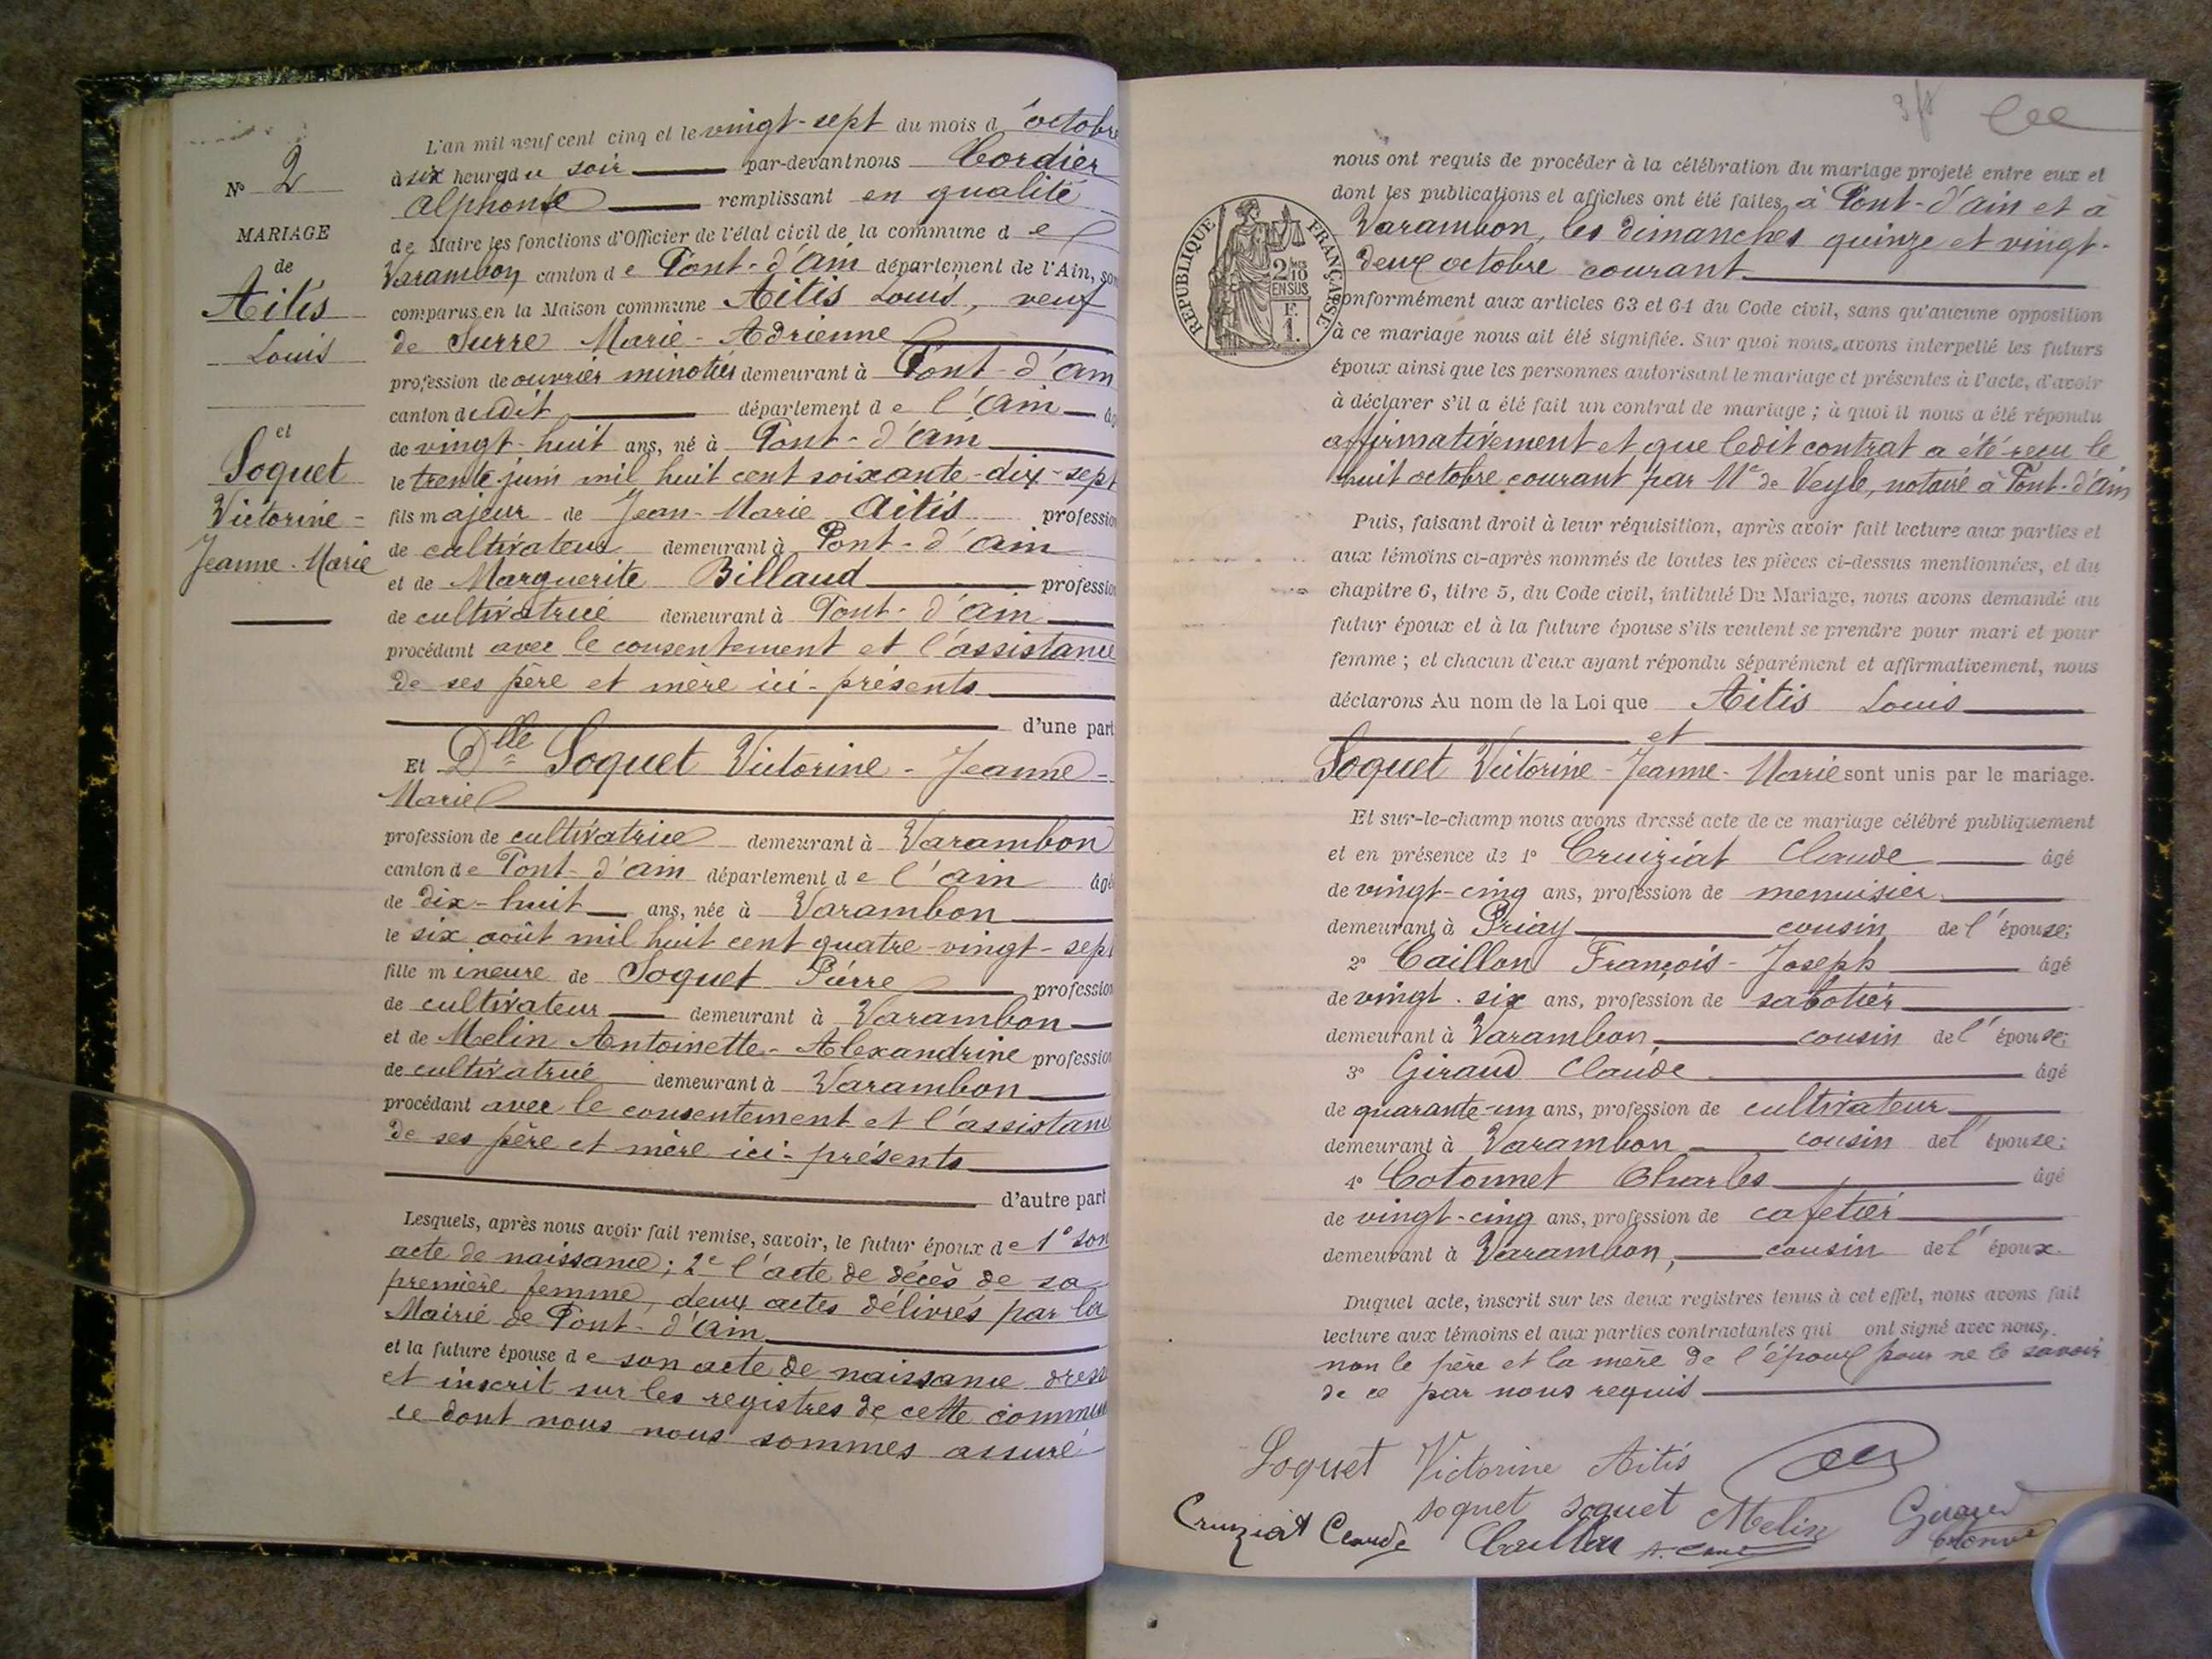 N° 2
MARIAGE
de
Aitis
Louis
et
Soquet
Victorine-
Jeanne-Marie
L'an mil neuf cent cinq et le vingt-sept du mois d'octobre
à six heures du soir par-devant nous Cordier
Alphonse remplissant en qualité
de Maire les fonctions d'Officier de l'état civil de la commune de
Varambon canton de Pont-d'Ain département de l'Ain, son
comparus en la Maison commune Aitis Louis, veuf
de Surre Marie-Adrienne
profession de ouvrier minotier demeurant à Pont-d'Ain
canton dudit département de l'Ain âg
de vingt-huit ans, né à Pont-d'Ain
le trente juin mil huit cent soixante-dix-sept
fils majeur de Jean-Marie Aitis profession
de cultivateur demeurant à Pont-d'Ain
et de Marguerite Billaud profession
de cultivatrice demeurant à Pont-d'Ain
procédant avec le consentement et l'assistance
de ses père et mère ici-présents
d'une part
Et Dlle Soquet Victorine-Jeanne-
Marie
profession de cultivatrice demeurant à Varambon
canton de Pont-d'Ain département de l'Ain âgé
de dix-huit ans, née à Varambon
le six août mil huit cent quatre-vingt-sept
fille mineure de Soquet Pierre profession
de cultivateur demeurant à Varambon
et de Melin Antoinette-Alexandrine profession
de cultivatrice demeurant à Varambon
procédant avec le consentement et l'assistance
de ses père et mère ici-présents
d'autre part
Lesquels, après nous avoir fait remise, savoir, le futur époux de 1° son
acte de naissance; 2° l'acte de décès de sa
première femme, deux actes délivrés par la
Mairie de Pont-d'Ain
et la future épouse de son acte de naissance dressé
et inscrit sur les registres de cette commune
ce dont nous nous sommes assuré
nous ont requis de procéder à la célébration du mariage projeté entre eux et
dont les publications et affiches ont été faites à Pont-d'Ain et à
Varambon, les dimanches quinze et vingt-
deux octobre courant
RÉPUBLIQUE FRANÇAISE
2/10 EN SUS
F. 1.
conformément aux articles 63 et 64 du Code civil, sans qu'aucune opposition
à ce mariage nous ait été signifiée. Sur quoi nous avons interpellé les futurs
époux ainsi que les personnes autorisant le mariage et présentes à l'acte, d'avoir
à déclarer s'il a été fait un contrat de mariage; à quoi il nous a été répondu
affirmativement et que ledit contrat a été reçu le
huit octobre courant par Me de Veyle, notaire à Pont-d'Ain
Puis, faisant droit à leur réquisition, après avoir fait lecture aux parties et
aux témoins ci-après nommés de toutes les pièces ci-dessus mentionnées, et du
chapitre 6, titre 5, du Code civil, intitulé Du Mariage, nous avons demandé au
futur époux et à la future épouse s'ils veulent se prendre pour mari et pour
femme; et chacun d'eux ayant répondu séparément et affirmativement, nous
déclarons Au nom de la Loi que Aitis Louis
et
Soquet Victorine-Jeanne-Marie sont unis par le mariage.
Et sur-le-champ nous avons dressé acte de ce mariage célébré publiquement
et en présence de 1° Cruiziat Claude âgé
de vingt-cinq ans, profession de menuisier
demeurant à Priay cousin de l'épouse;
2° Caillon François-Joseph âgé
de vingt-six ans, profession de sabotier
demeurant à Varambon, cousin de l'épouse;
3° Giraud Claude âgé
de quarante-un ans, profession de cultivateur
demeurant à Varambon cousin de l'épouse;
4° Cotonnet Charles âgé
de vingt-cinq ans, profession de cafetier
demeurant à Varambon, cousin de l'époux.
Duquel acte, inscrit sur les deux registres tenus à cet effet, nous avons fait
lecture aux témoins et aux parties contractantes qui ont signé avec nous,
non le père et la mère de l'époux pour ne le savoir
de ce par nous requis
Soquet Victorine Aitis
soquet soquet Melin Giraud
Cruiziat Claude Caillon